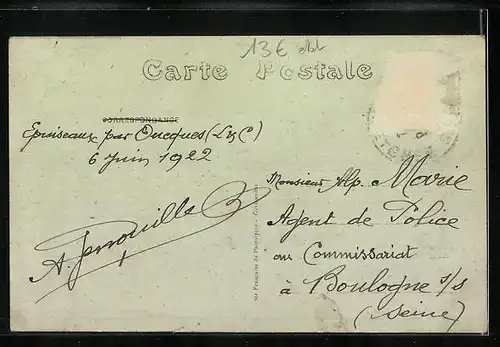 13€
Carte Postale
CORRESPONDANCE
par Oucques (L & C)
6 Juin 1922
Monsieur Alp. Marie
Agent de Police
au Commissariat
à Boulogne s/s
(Seine)
A.